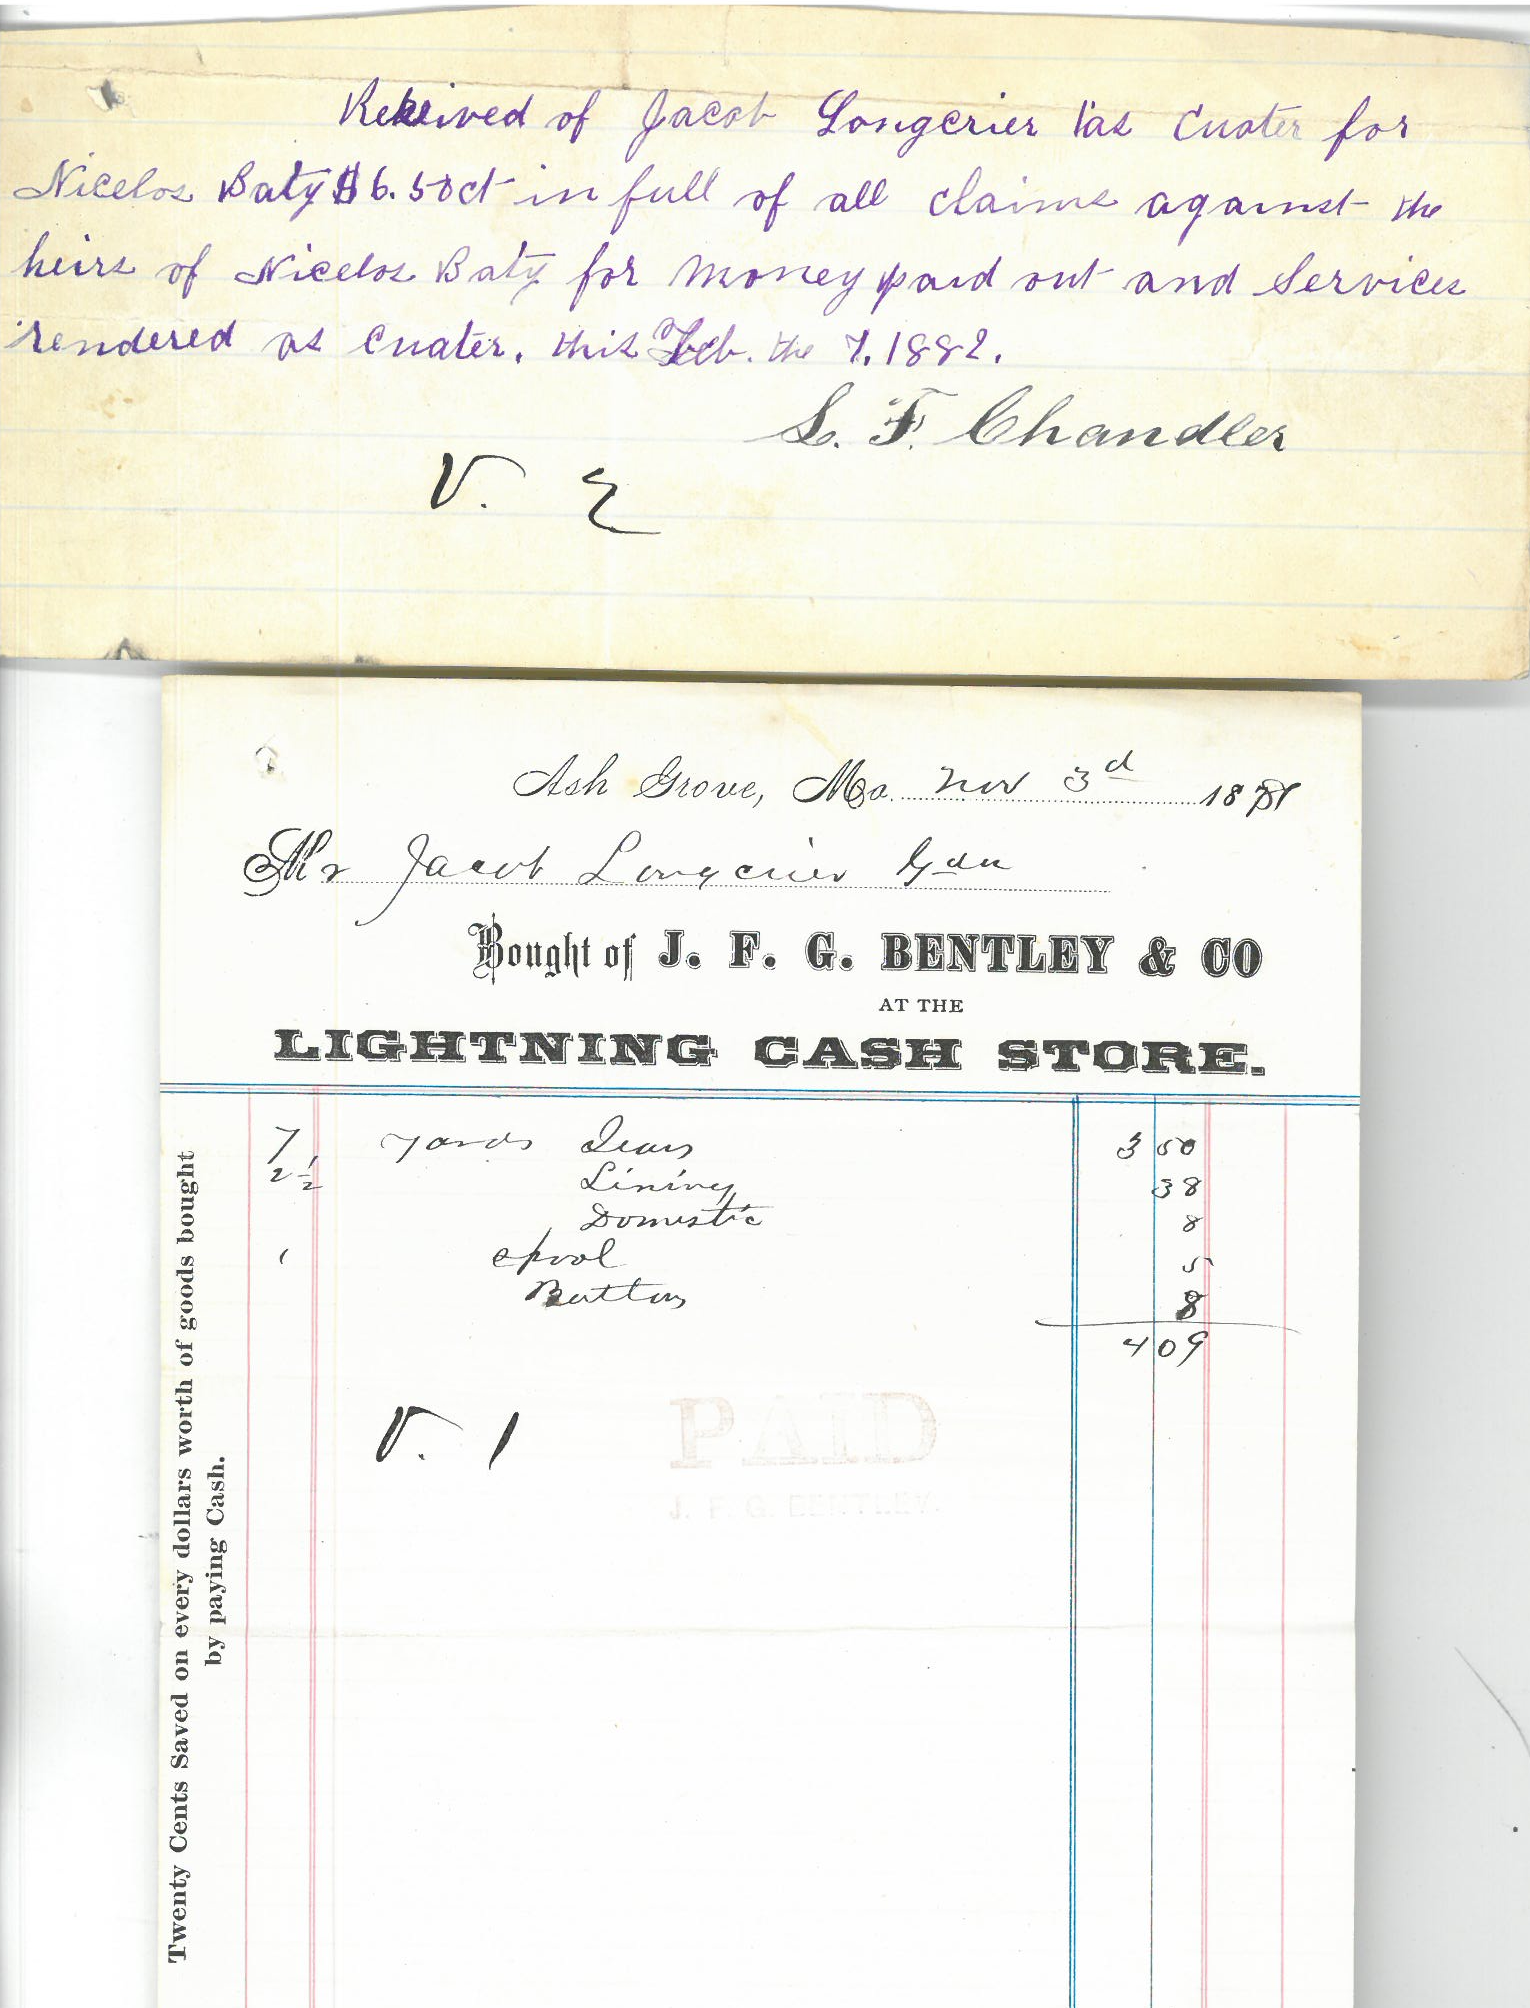 Received of Jacob Longcrier as Cuater for
Nicelos Baty $6.50ct in full of all claims against the
heirs of Nicelos Baty for Money paid out and Services
rendered as Cuater. this Feb. the 7. 1882.
S. F. Chandler
V. 2
Ash Grove, Mo. Nov 3d 1881
Mr Jacob Longcrier Gdn
Bought of J. F. G. BENTLEY & CO
AT THE
LIGHTNING CASH STORE.
Twenty Cents Saved on every dollars worth of goods bought
by paying Cash.
7 yards Jeans 3 50
2 1/2 Lining 38
Domestic 8
1 spool 5
Buttons 8
4 09
V. 1
PAID
J. F. G. BENTLEY.